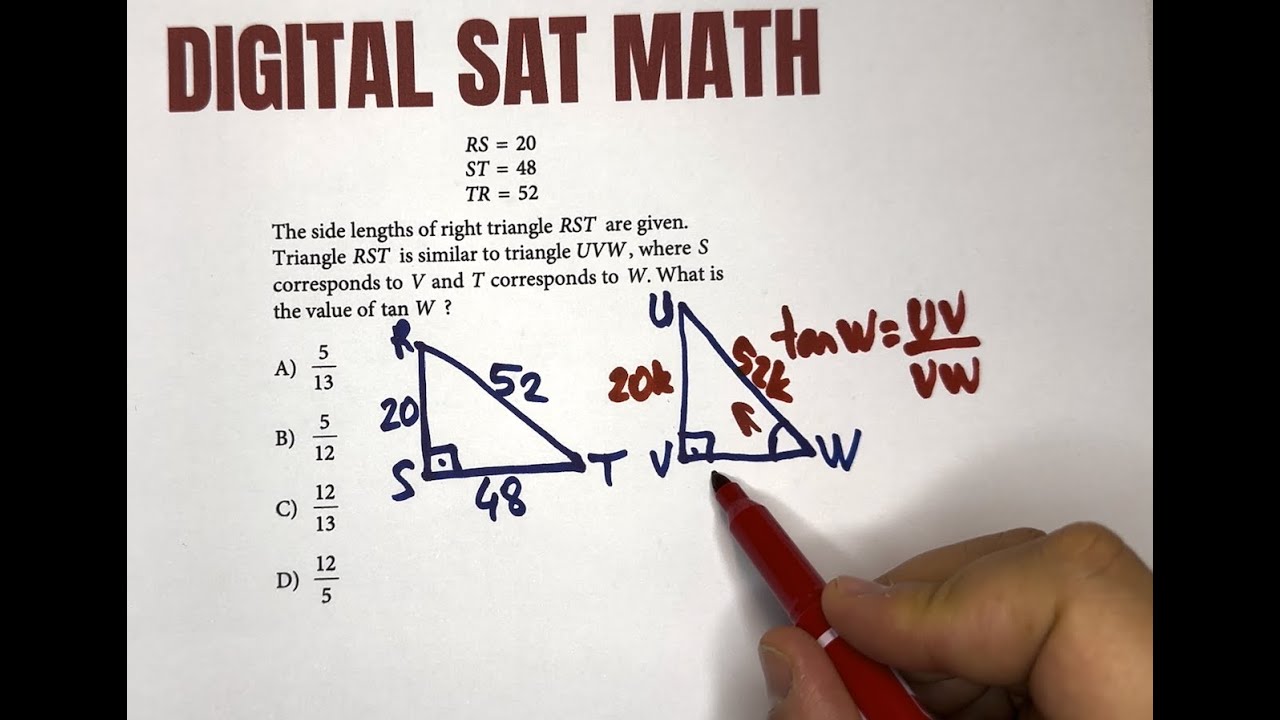 DIGITAL SAT MATH
RS = 20
ST = 48
TR = 52
The side lengths of right triangle RST are given.
Triangle RST is similar to triangle UVW, where S
corresponds to V and T corresponds to W. What is
the value of tan W ?
A) 5/13
B) 5/12
C) 12/13
D) 12/5
R
20
52
S
48
T
U
20k
52k
V
W
tanW = UV/VW